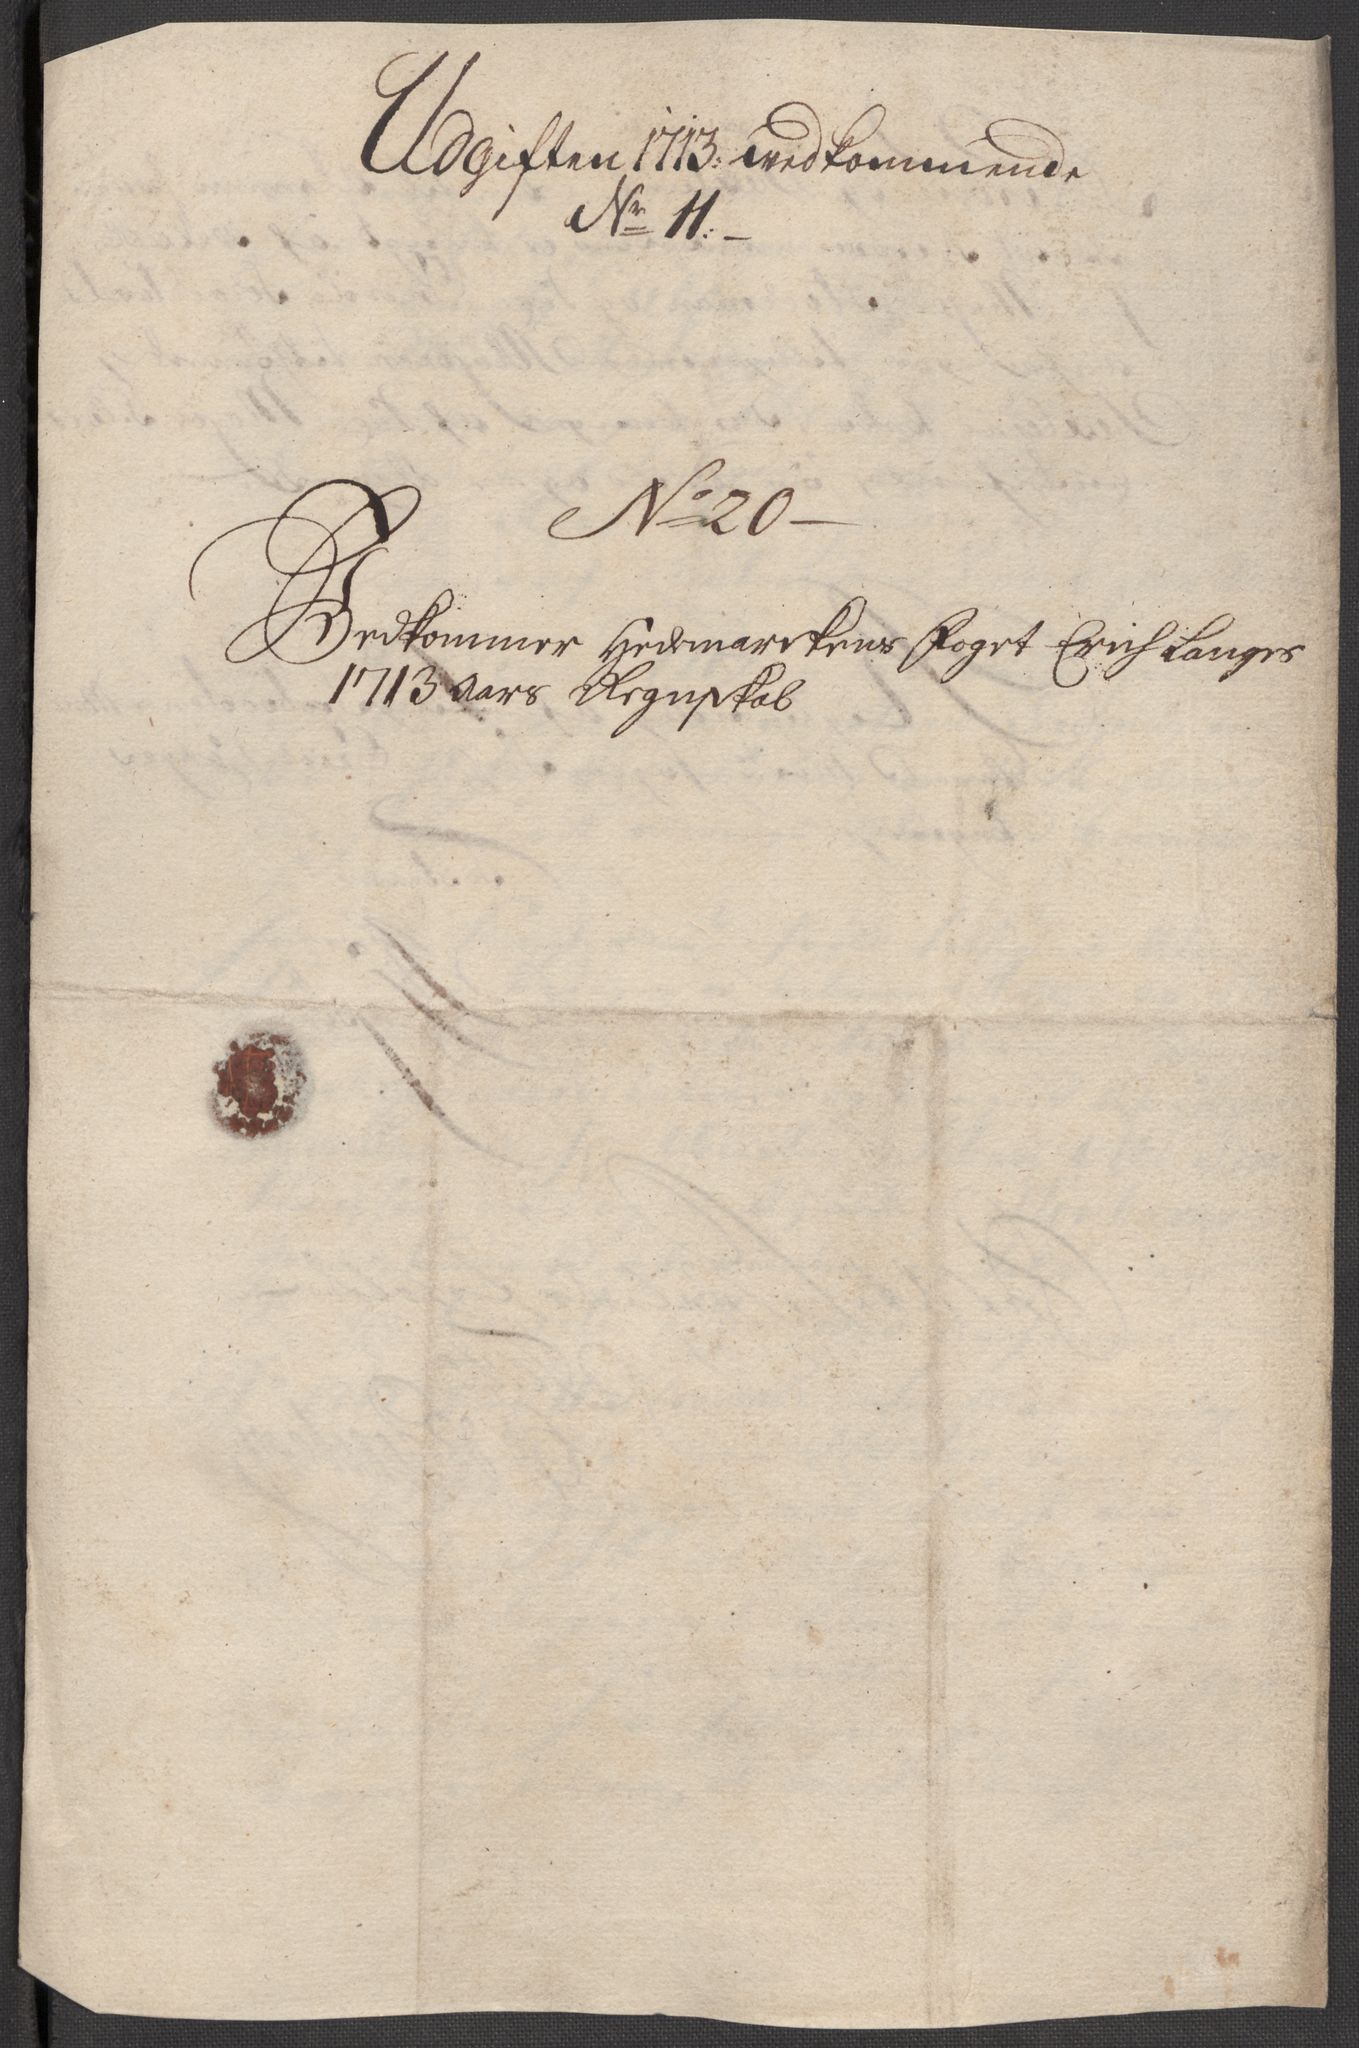 Udgiften 1713: wedkommende
Nr 11:-
No 20-
Vedkommer Hedemarckens Foget Erich Langes
1713 Aars Regnskab